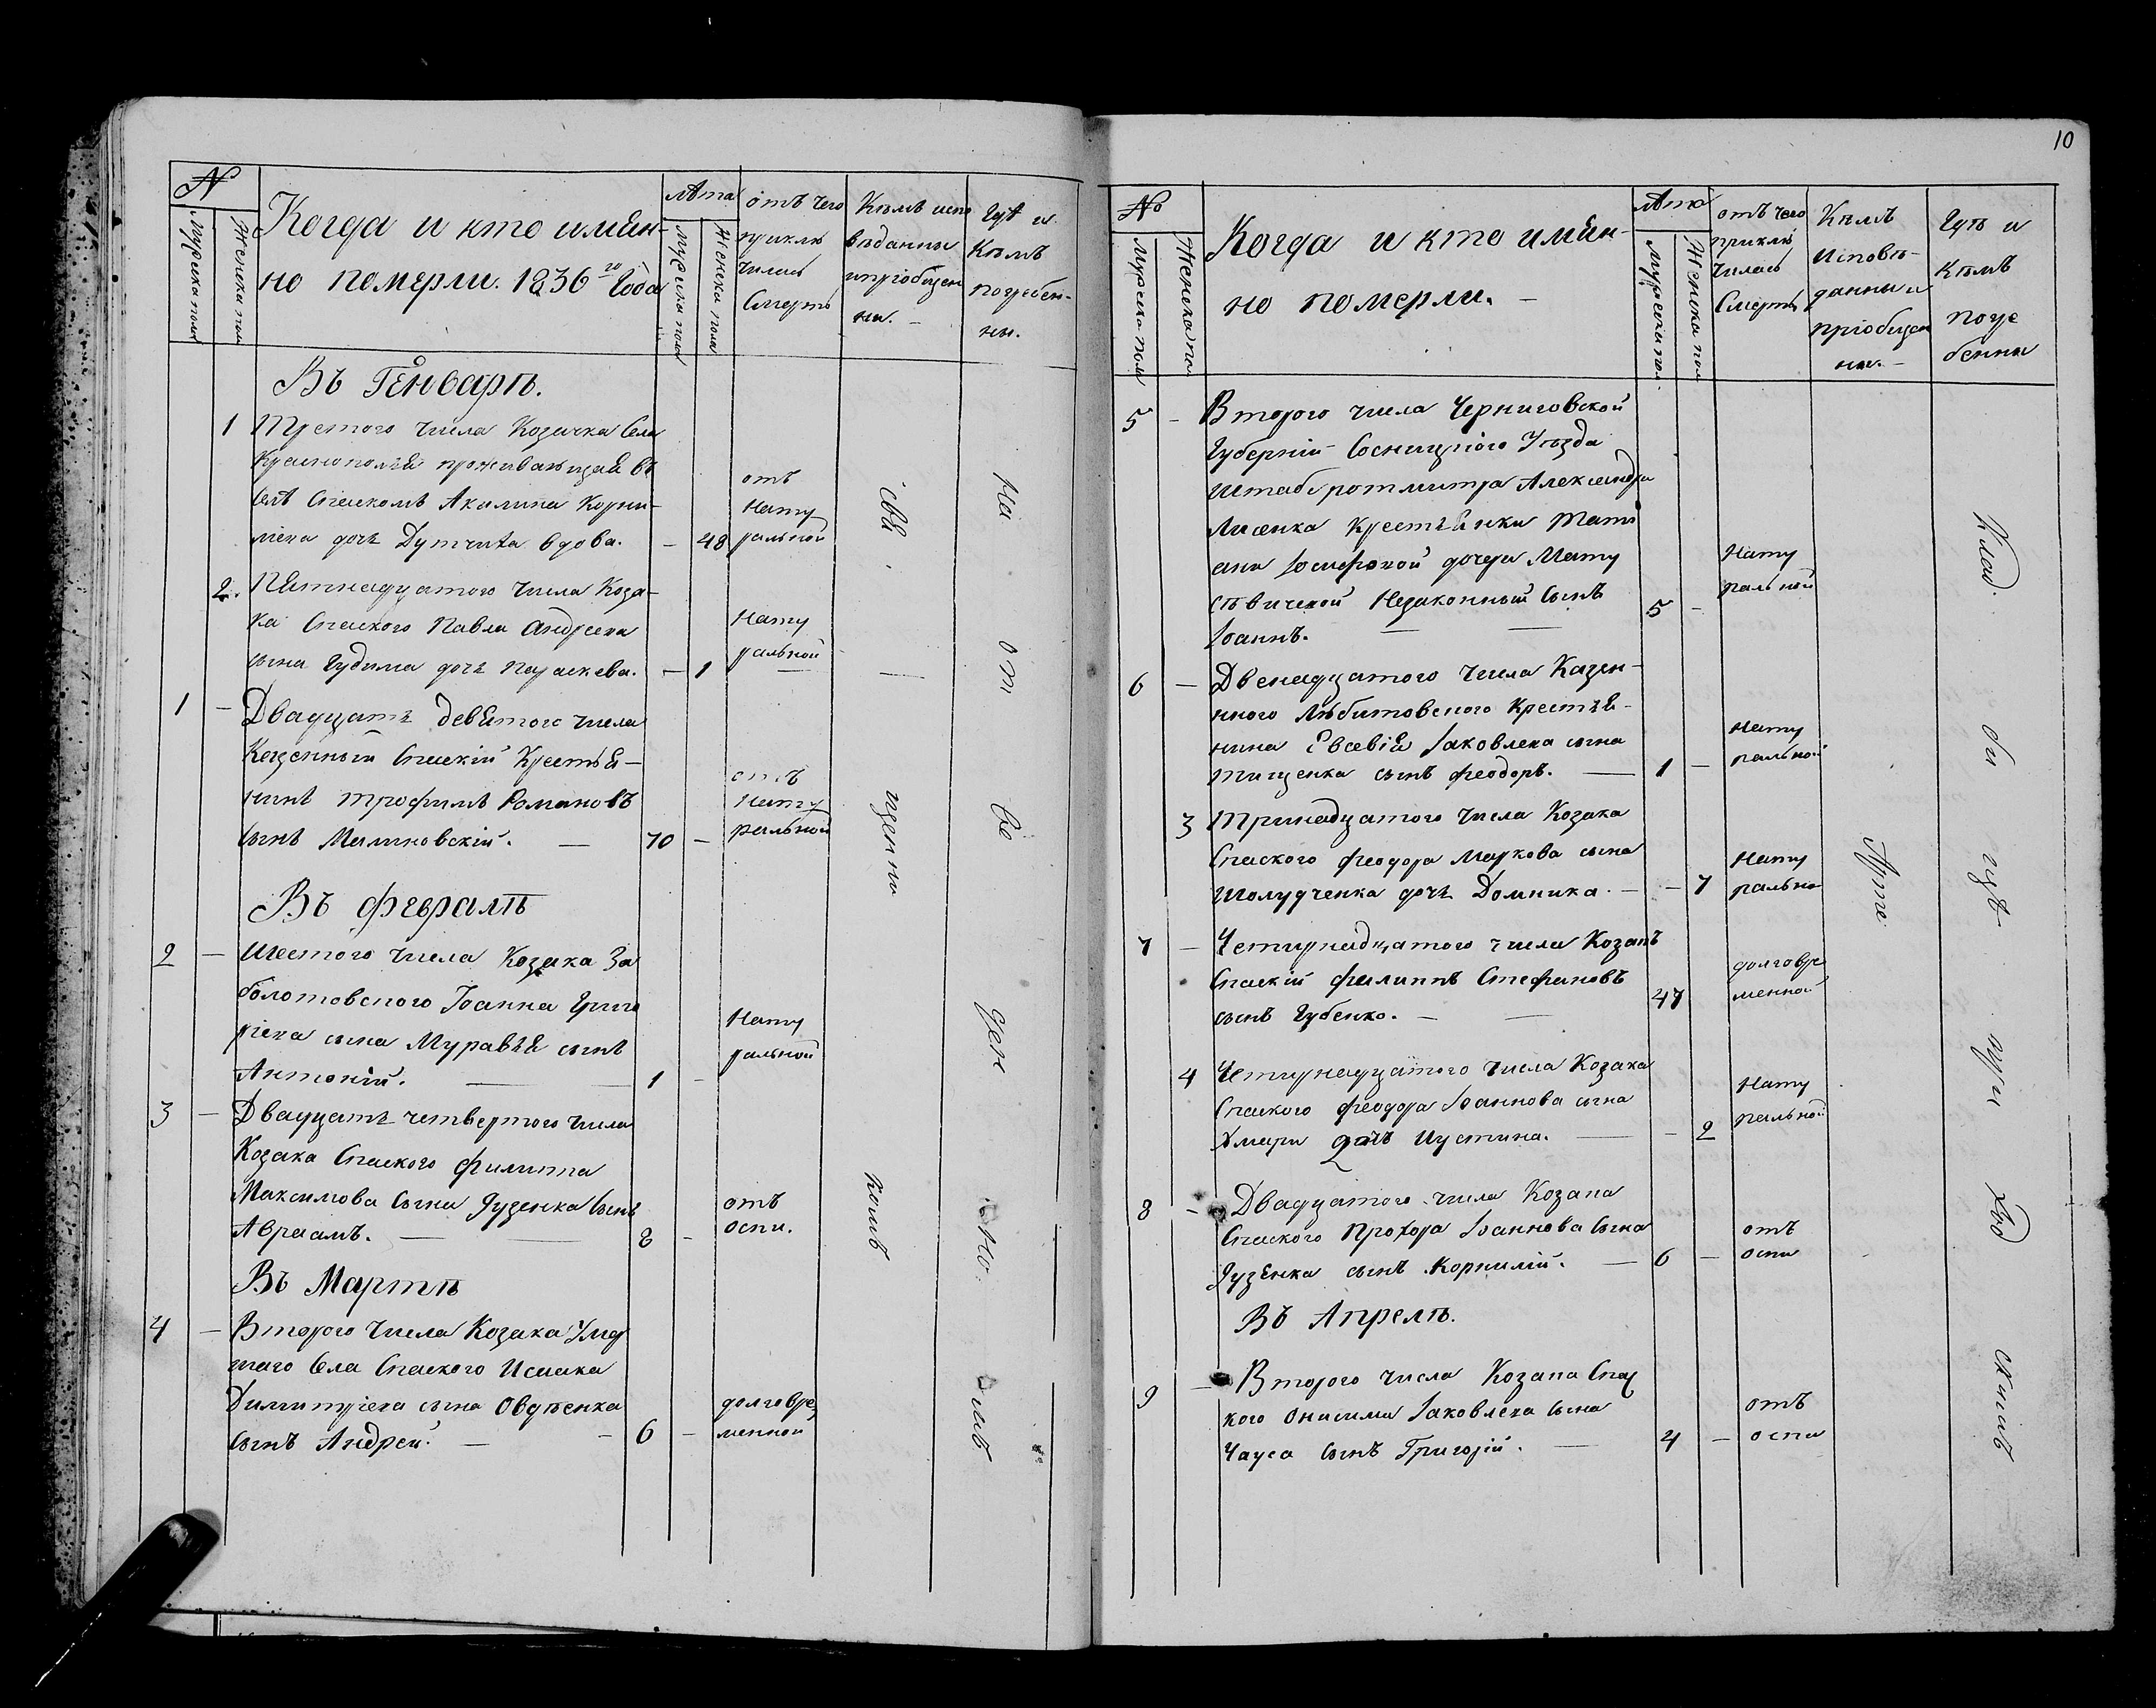 10
№
Мужеска пола
Женска пола
Когда и кто имян-
но померли. 1836го Года
лѣта
Мужеска пола
Женска пола
отъ чего
приклю
чилась
Смерть
Кѣмъ испо
вѣданны
и пріобщен
ны. –
Гдѣ и
Кѣмъ
погребен-
ны.
Въ Генварѣ.
1 Третого числа Козачка Села
Краснополья проживающая въ
селѣ Спаскомъ Акилина Корни-
ліева дочь вдова. – 48
отъ
Нату
ральной
2. Пятнадцатого числа Коза-
ка Спаского Павла Андреева
сына Гудима дочь Параскева. – 1
Нату
ральной
1 – Двадцать девятого числа
Казенный Спаскій Крестья-
нинъ Трофимъ Романовъ
сынъ Малиновскій. – 70 –
отъ
Нату
ральной
Въ Февралѣ
2 – Шестого числа Козака За
болотовского Іоанна Григо
ріева сына Муравья сынъ
Антоній. – 1 –
Нату
ральной
3 – Двадцать четвертого числа
Козака Спаского Филиппа
Максимова сына Гузенка сынъ
Авраамъ. – 8 –
отъ
оспи.
Въ Мартѣ
4 – Второго числа Козака
того села Спаского Исаака
Димитріева сына Овдѣенка
сынъ Андрей. – 6 –
долговре
менной
на
см
№
Мужеска пола
Женска пола
Когда и кто имян-
но померли. –
лѣта
Мужеска пол
Женска пол
отъ чего
приклю
чилась
Смерть
Кѣмъ
Исповѣ-
данны и
пріобщен
ны. –
Гдѣ и
кѣмъ
погре
бенны
5 – Второго числа Черниговской
Губерній Сосницкіого Уѣзда
Штабсротмитра Александра
Лисенка Крестьянки Тати
аны Іосифовой дочери Мату
сѣвичевой Незаконный Сынъ
Іоаннъ. – 5 –
Нату
ральной
6 – Двенадцатого числа Казен-
ного Любитовского Крестья-
нина Евсевія Іаковлева сына
Тищенка сынъ Феодоръ. – 1 –
Нату
ральной
3 Тринадцатого числа Козака
Спаского Феодора Маркова сына
Шолудченка дочь Домника. – – 7
Нату
рально
7 – Четирнадцатого числа Козакъ
Спаскій Филиппъ Стефановъ
сынъ Губенко. – 47
долговре
менной
4 Четирнадцатого числа Козака
Спаского Феодора Іоаннова сына
Хмари дочь Иустина. – – 2
Нату
ральной
8 – Двадцатого числа Козака
Спаского Прохора Іоаннова сына
Гузенка сынъ Корнилій. – 6 –
отъ
оспи
Въ Апрелѣ.
9 – Второго числа Козака Спас
кого Онисима Іаковлева сына
Чауса сынъ Григорій. – 4 –
отъ
оспи